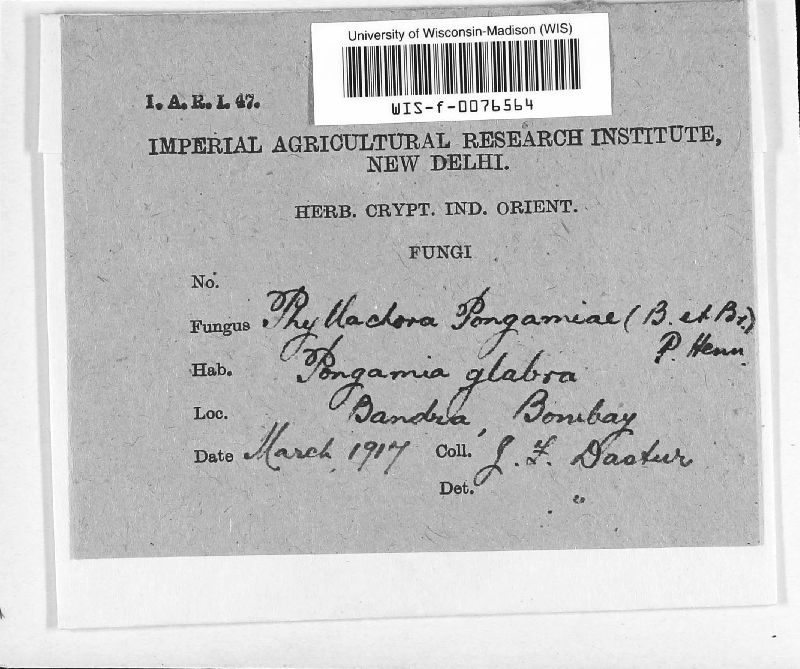 University of Wisconsin-Madison (WIS)
WIS-f-0076564
I. A. R. I. 47.
IMPERIAL AGRICULTURAL RESEARCH INSTITUTE,
NEW DELHI.
HERB. CRYPT. IND. ORIENT.
FUNGI
No.
Fungus Phyllachora Pongamiae (B. et Br.)
P. Henn.
Hab. Pongamia glabra
Loc. Bandra, Bombay
Date March 1917 Coll. J. F. Dastur
Det. "